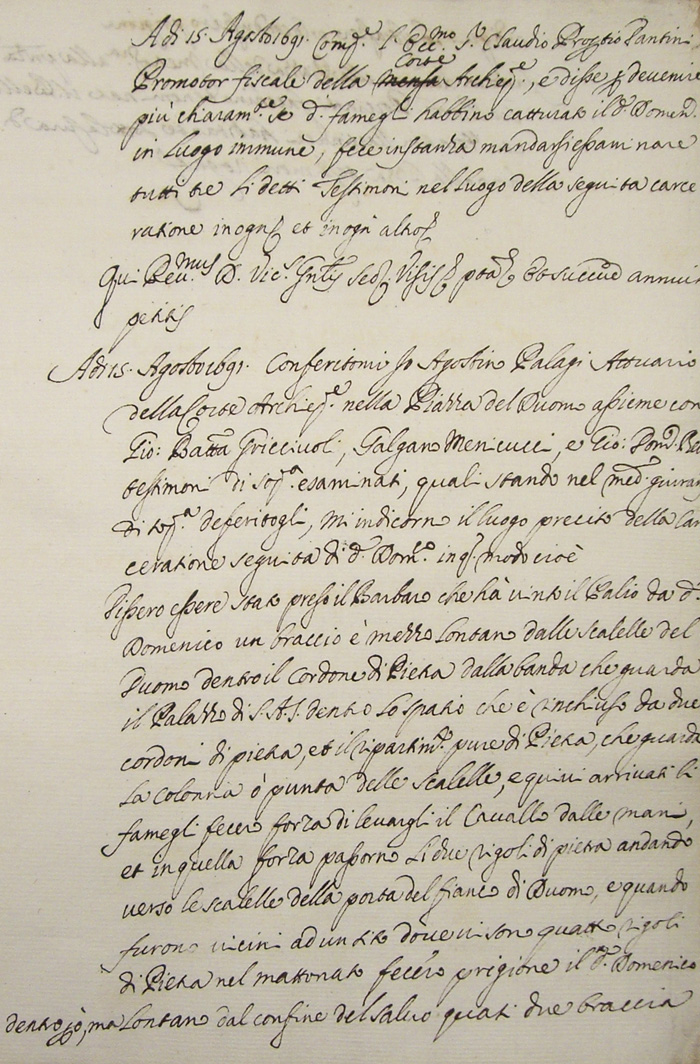 Adi 15. Agosto 1691. Comp.e l'Ecc.mo S.r Claudio Pantini
Promotor fiscale della mensa Corte Archiep.e, e disse p devenire
più charam.te se d.i famegli habbino catturato il d.o Domen.
in luogo immune, fece instanza mandarsi essaminare
tutti tre li detti Testimoni nel luogo della seguita carce
ratione in ogni et in ogn'altro
Qui Rev.mus D. Vic.s Gn̄lis Sed. Visis annuit
petitis
Adi 15. Agosto 1691. Conferitomi Io Agostino Palagi Attuario
della Corte Archiep.e nella Piazza del Duomo assieme con
Gio: Batta Griccivoli, Galgano Menicucci, e Gio: Dom.
testimoni di sop.a esaminati, quali stando nel med.o giuram
di sop.a deferitogli, mi indicorno il luogo preciso della Car
ceratione seguita di d.o Dom.o in q.o modo cioè
Dissero essere stato preso il Barbaro che hà vinto il Palio da d.o
Domenico un braccio è mezzo lontano dalle scalelle del
Duomo dentro il cordone di Pietra dalla banda che guarda
il Palazzo di S.A.S. dentro lo spatio che è rinchiuso da due
cordoni di pietra, et il ripartim.to pure di Pietra, che guarda
la colonna ò punta delle scalelle, e quivi arrivati li
famegli fecero forza di levargli il Cavallo dalle mani,
et in quella forza passorno li due rigoli di pietra andando
verso le scalelle della porta del fianco di Duomo, e quando
furono vicini ad un sito dove vi sono quattro rigoli
di Pietra nel mattonato fecero prigione il d.o Domenico
dentro però, ma lontano dal confine del salvo quasi due braccia